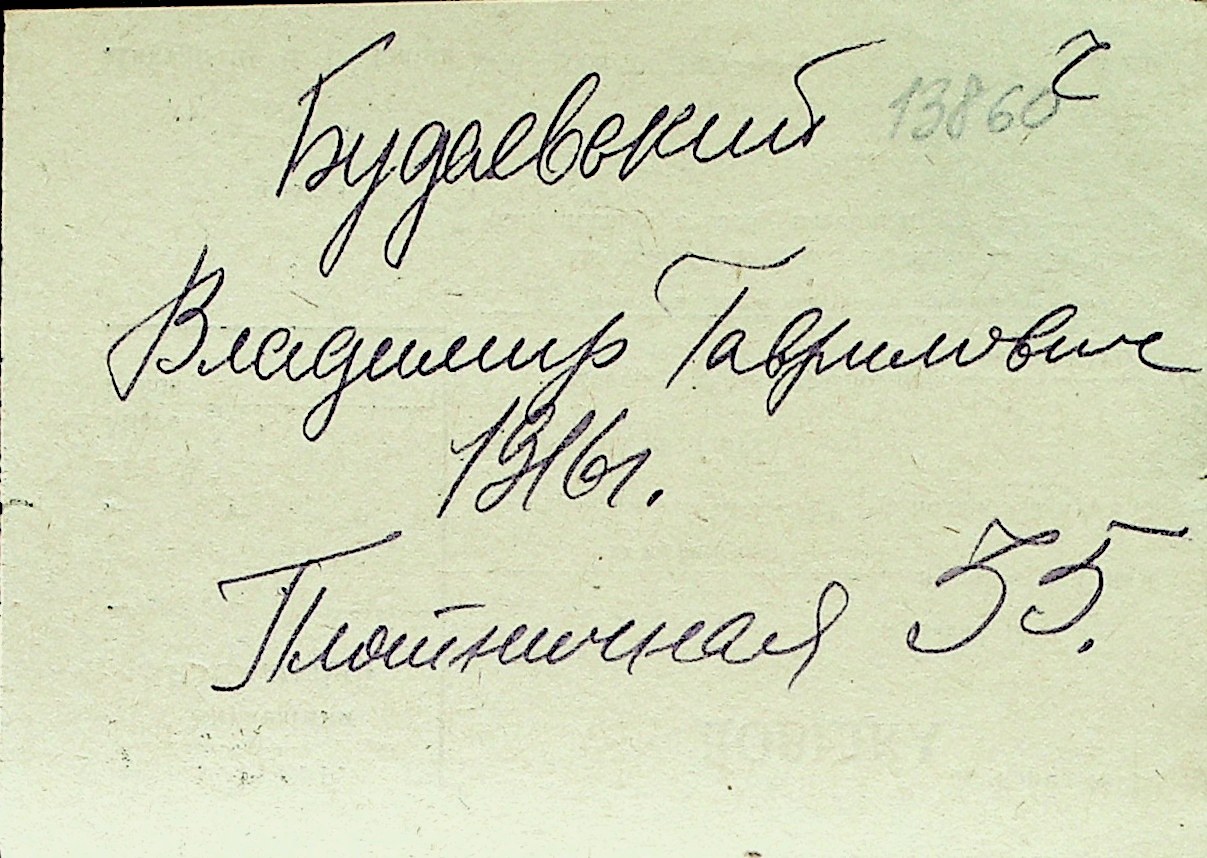 Будаевский 13860 ч
Владимир Гаврилович
1916г.
Плотничная 35.